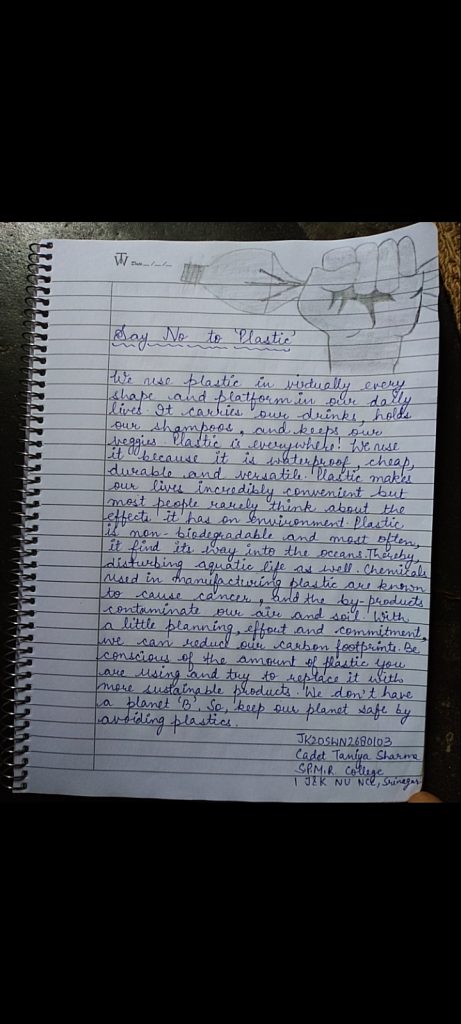 Date __/__/__
Say No to 'Plastic'
We use plastic in virtually every
shape and platform in our daily
lives. It carries our drinks, holds
our shampoos, and keeps our
veggies. Plastic is everywhere! We use
it because it is waterproof, cheap,
durable and versatile. Plastic makes
our lives incredibly convenient but
most people rarely think about the
effects it has on environment. Plastic
is non-biodegradable and most often,
it find its way into the oceans. Thereby
disturbing aquatic life as well. Chemicals
used in manufacturing plastic are known
to cause cancer, and the by-products
contaminate our air and soil. With
a little planning, effort and commitment,
we can reduce our carbon footprints. Be
conscious of the amount of plastic you
are using and try to replace it with
more sustainable products. We don't have
a planet 'B'. So, keep our planet safe by
avoiding plastics.
JK20SWN2680103
Cadet Taniya Sharma
S.P.M.R College
1 J&K NU NCC, Srinagar